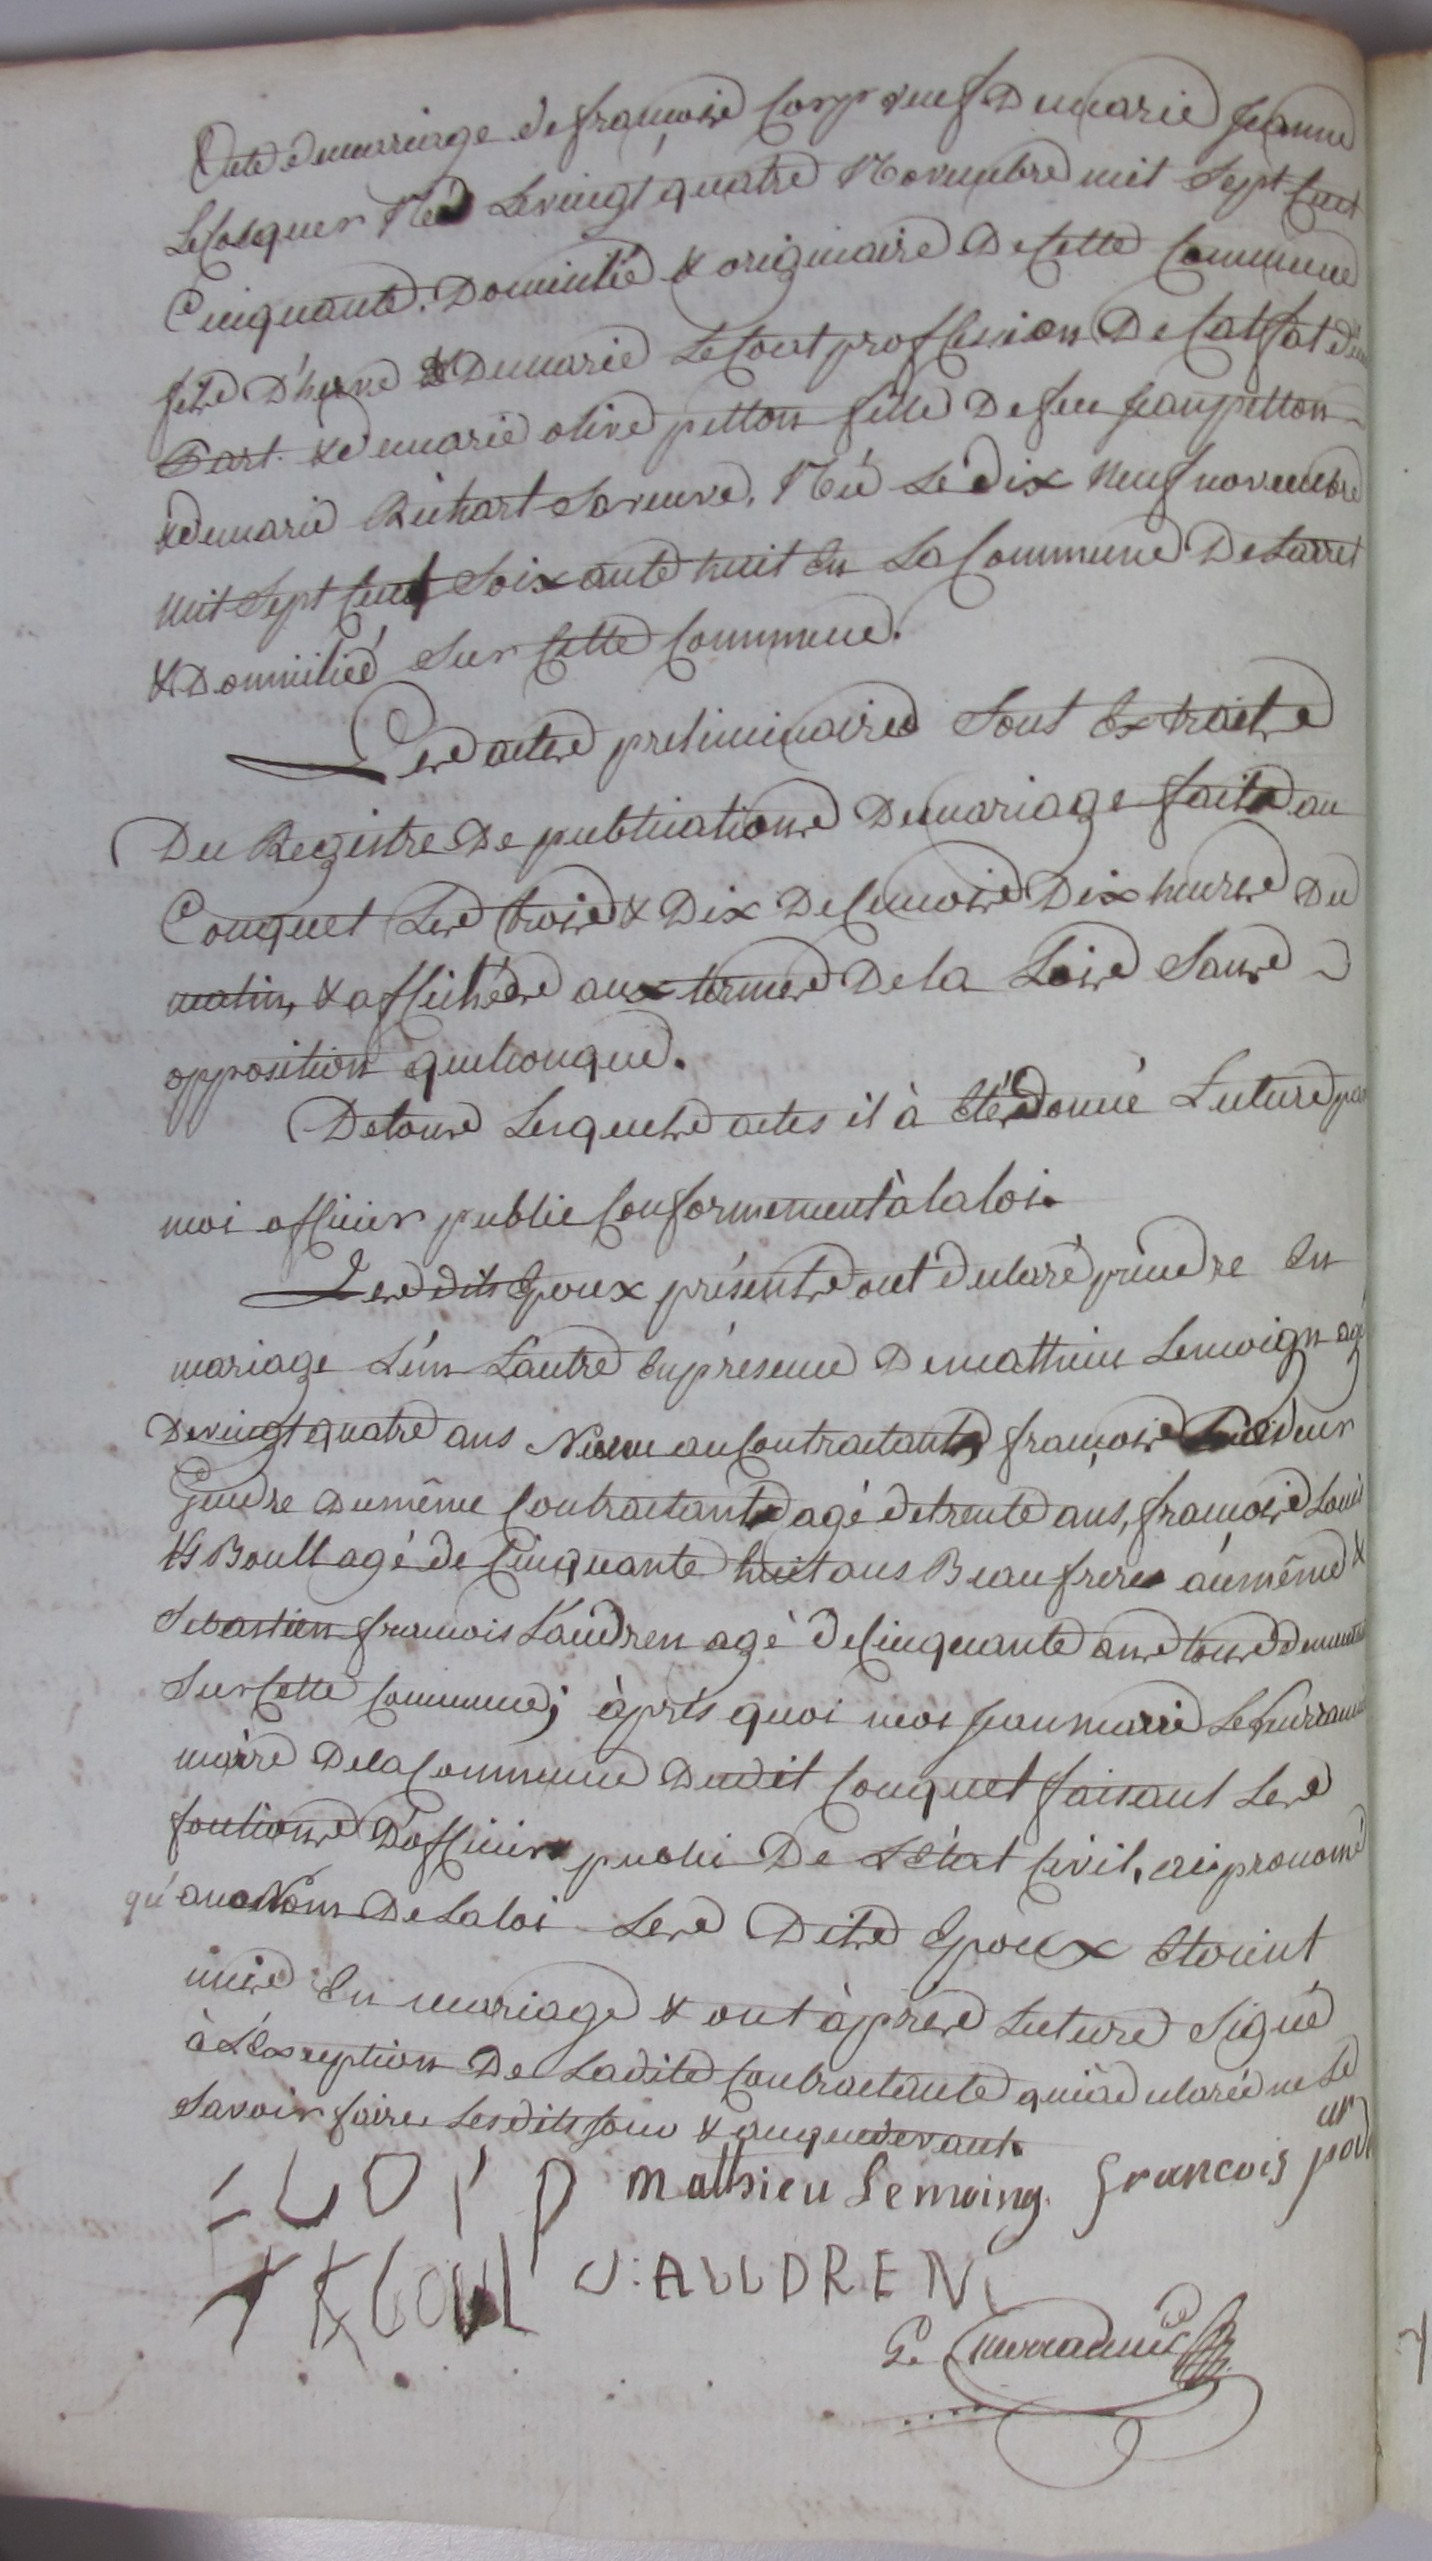 Acte de mariage de françois Corp veuf De marie jeanne
Le Cosquer Né Le vingt quatre Novembre mil Sept Cent
Cinquante. Domicilié & originaire De Cette Commune
fils D'herve & De marie Le Cout proffession De Calfat d'une
Part. & de marie olive petton fille De feu jean petton
& de marie Richart Sa veuve, Née Le dix neuf novembre
mil Sept Cent Soixante huit En La Commune De Larret
& Domiciliée Sur Cette Commune.
Les actes preliminaires Sont Extraits
Du Registre De publications De mariage faits au
Conquet Les trois & Dix De Ce mois Dix heures Du
matin, & affichés aux termes De la Loix Sans
opposition quelconque.
De tous Lesquels actes il à Eté donné Lecture par
moi officier public Conformement à la loi.
Les dits Epoux présents ont declaré prendre En
mariage L'un L'autre En présence De mathieu Lemoign agé
De vingt quatre ans Neveu au Contractant, françois
Gendre Du même Contractant agé de trente ans, françois Louis
K/Boull agé de Cinquante huit ans Beaufrere au même &
Sebastien françois Vaudren agé de Cinquante ans tous
Sur Cette Commune; àprés quoi moi jean marie Le Guerrannic
maire De la Commune Dudit Conquet faisant Les
fonctions D'officier public De L'Etat Civil, ai prononcé
qu'au Nom De La loi Les Dits Epoux Etoient
unis En mariage & ont àprés Lecture Signé
à L'Exception De Ladite Contractante qui a declarée ne Le
Savoir faire, Lesdits jour & an que devant.
Mathieu Lemoing. francois
VAUDREN
Le Guerrannic